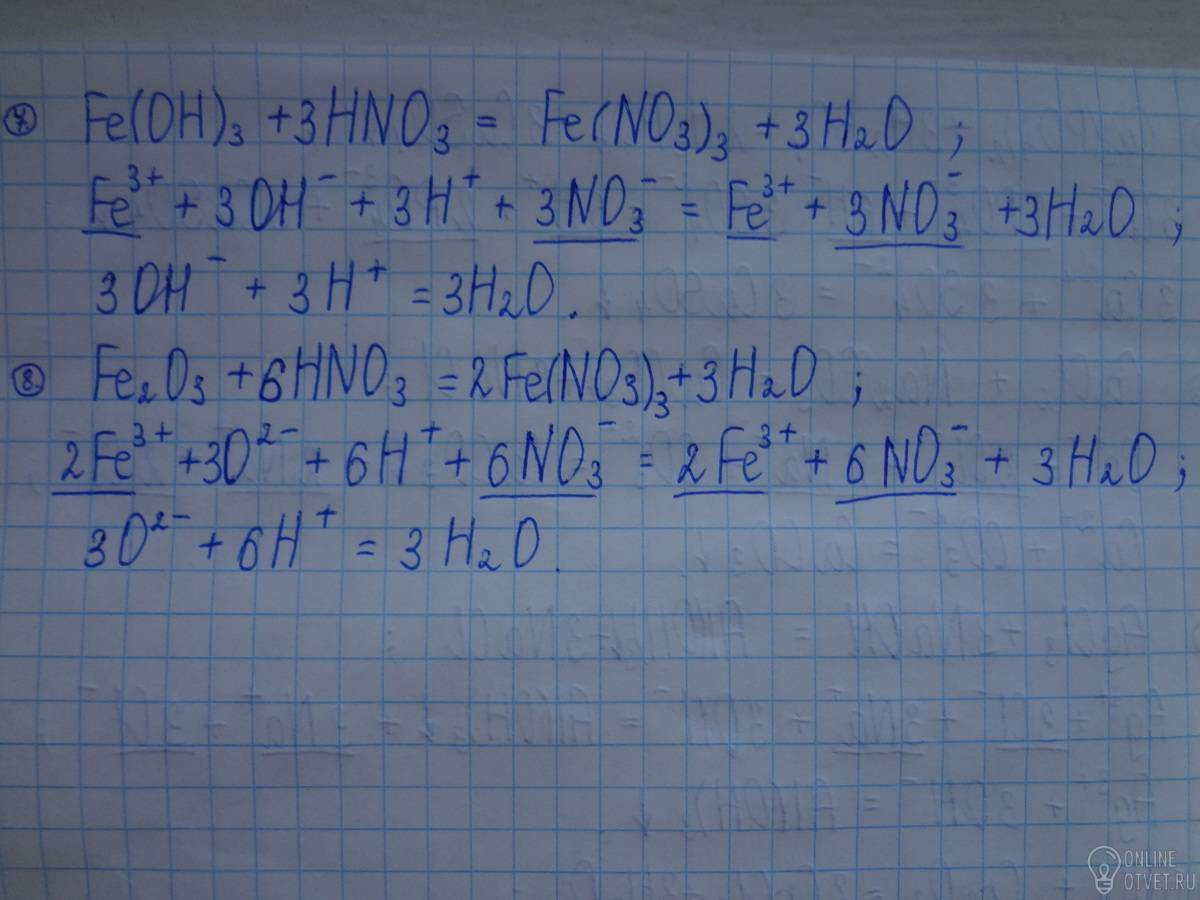 7. Fe(OH)₃ + 3HNO₃ = Fe(NO₃)₃ + 3H₂O ;
Fe³⁺ + 3OH⁻ + 3H⁺ + 3NO₃⁻ = Fe³⁺ + 3NO₃⁻ + 3H₂O ;
3OH⁻ + 3H⁺ = 3H₂O.
8. Fe₂O₃ + 6HNO₃ = 2Fe(NO₃)₃ + 3H₂O ;
2Fe³⁺ + 3O²⁻ + 6H⁺ + 6NO₃⁻ = 2Fe³⁺ + 6NO₃⁻ + 3H₂O ;
3O²⁻ + 6H⁺ = 3H₂O.
ONLINE
OTVET.RU